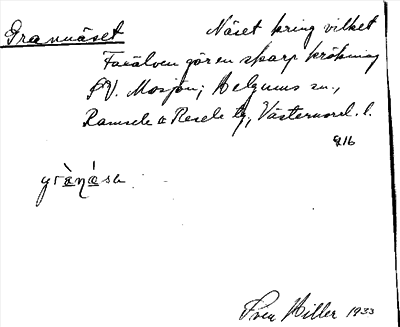 Grannäset Näset kring vilket
Faxälven gör en skarp krökning
SV. Mosjön; Helgums sn.,
Ramsele o Resele tg, Västernorrl. l.
916
grànása
Sven Hiller 1933